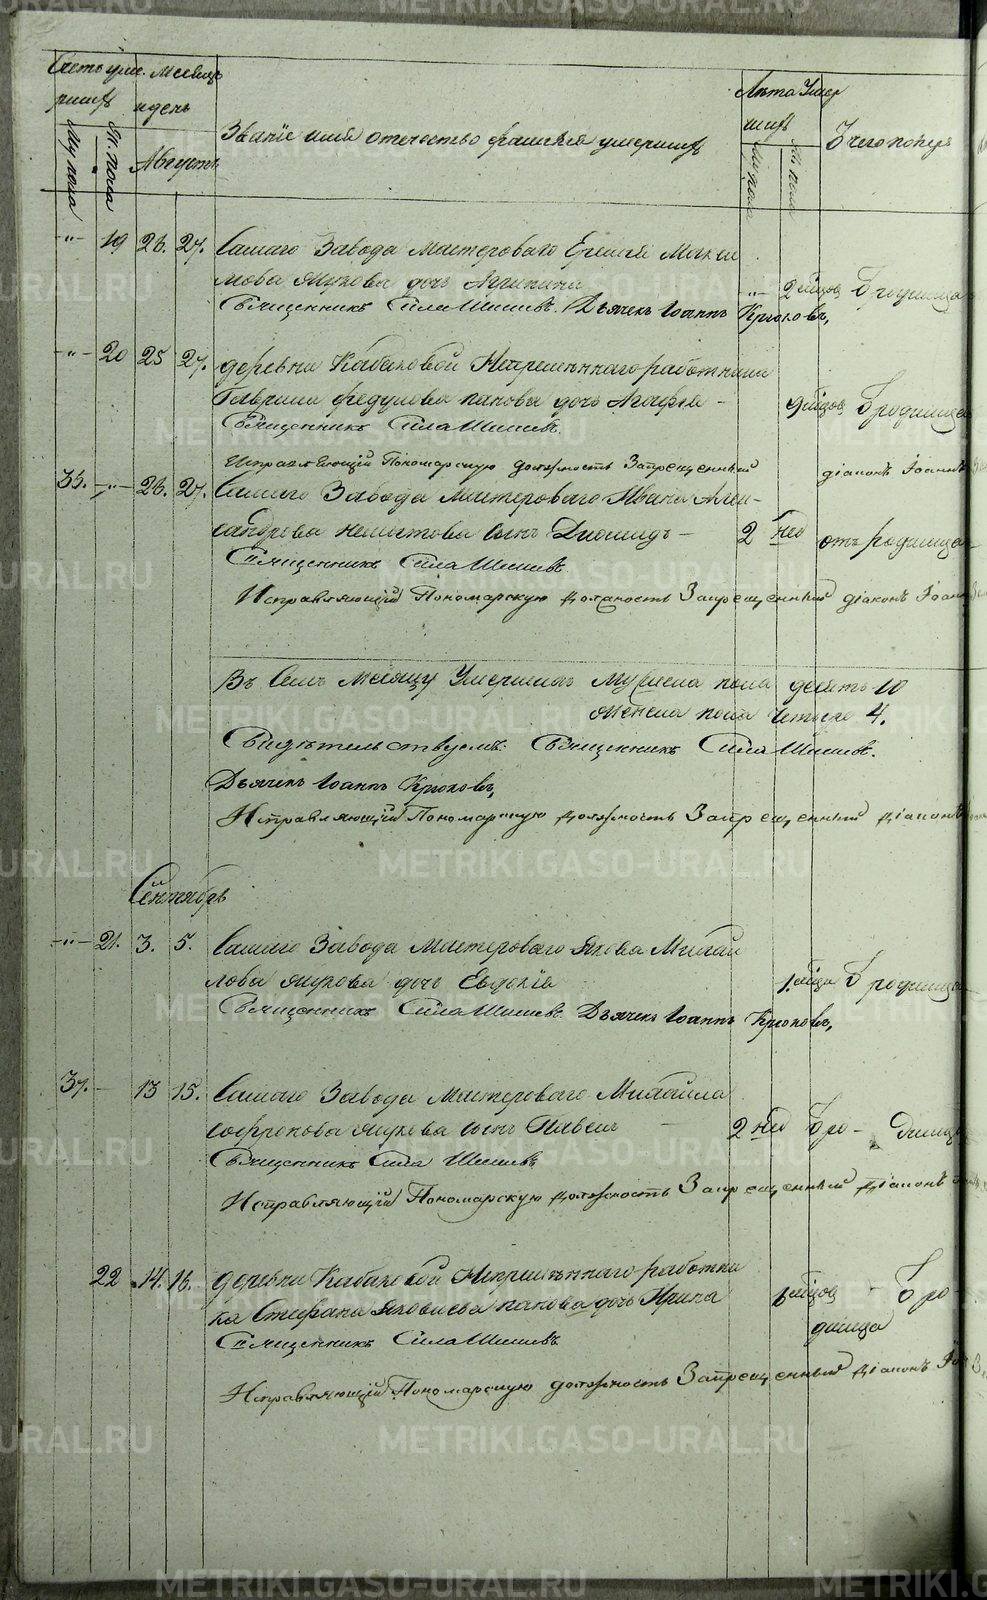 Счетъ уме- Месяцъ Лѣта Умер
ршихъ и день шихъ
Званіе имя отечество фамилія умершихъ
Му пола Ж. пола Августъ Му пола Ж. пола
-"- 19 26. 27. Сашаго Завода мастероваго
мова дочь Агрипина -"- 2 мѣцов
Священникъ Сила Шишевъ. Дьячекъ Іоаннъ Крюковъ,
-"- 20 25 27. деревни Кабаковой Непремѣннаго работника
Гаврила Федулова Панова дочь Агафія - 9 мѣцов Ѿ родимца
Священникъ Сила Шишевъ.
Исправляющій Пономарскую должность Запрещенный діаконъ Іоаннъ
35. -"- 26. 27. Сашаго Завода мастероваго Ивана Алек-
сандрова сынъ Диомидъ - 2 нед отъ родимца
Священникъ Сила Шишевъ.
Исправляющій Пономарскую должность Запрещенный діаконъ Іоаннъ
Въ Семъ месяцу Умершихъ мужеска пола десять 10
женска пола четыре 4.
Свидѣтельствуемъ: Священникъ Сила Шишевъ.
Дьячекъ Іоаннъ Крюковъ,
Исправляющій Пономарскую должность Запрещенный діаконъ
Сентябрь
-"- 21. 3. 5. Сашаго Завода мастероваго Якова Михай
лова дочь Евдокія 1. мѣца Ѿ родимца
Священникъ Сила Шишевъ. Дьячекъ Іоаннъ Крюковъ,
37. - 13 15. Сашаго Завода мастероваго Михайла
Софронова сынъ Павелъ - 2 нед Ѿ ро- димца
Священникъ Сила Шишевъ
Исправляющій Пономарскую должность Запрещенный діаконъ
22 14. 16. деревни Кабаковой Непремѣннаго работни
ка Стефана Яковлева Панова дочь Ирина 6 мѣцов - Ѿ ро-
димца
Священникъ Сила Шишевъ
Исправляющій Пономарскую должность Запрещенный діаконъ
METRIKI.GASO-URAL.RU